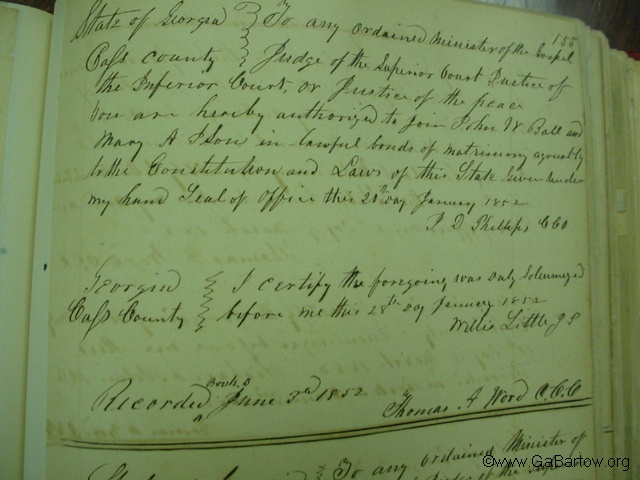 155
State of Georgia To any ordained minister of the Gospel
Cass county Judge of the Superior Court Justice of
the Inferior Court, or Justice of the peace
You are hereby authorized to join John W Ball and
Mary A in lawful bonds of matrimony agreably
to the Constitution and Laws of this State Given under
my hand Seal of Office this 28th Day January 1852
P. D. Phillips CCO
Georgia I certify the foregoing was duly Solemnized
Cass County before me this 28th Day January 1852
Willis Little JP
Recorded Book June 3rd 1852
Thomas A Word C.C.O
To any ordained Minister of
©www.GaBartow.org